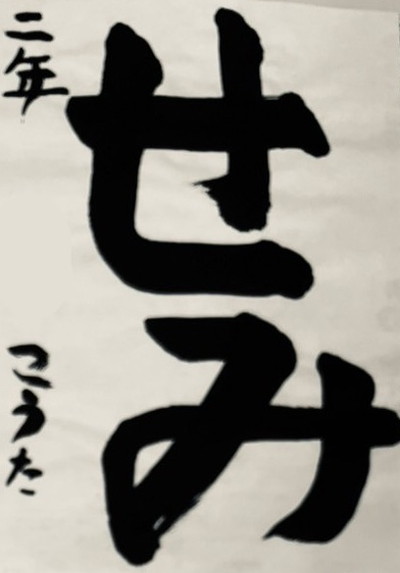 せみ
二年 こうた